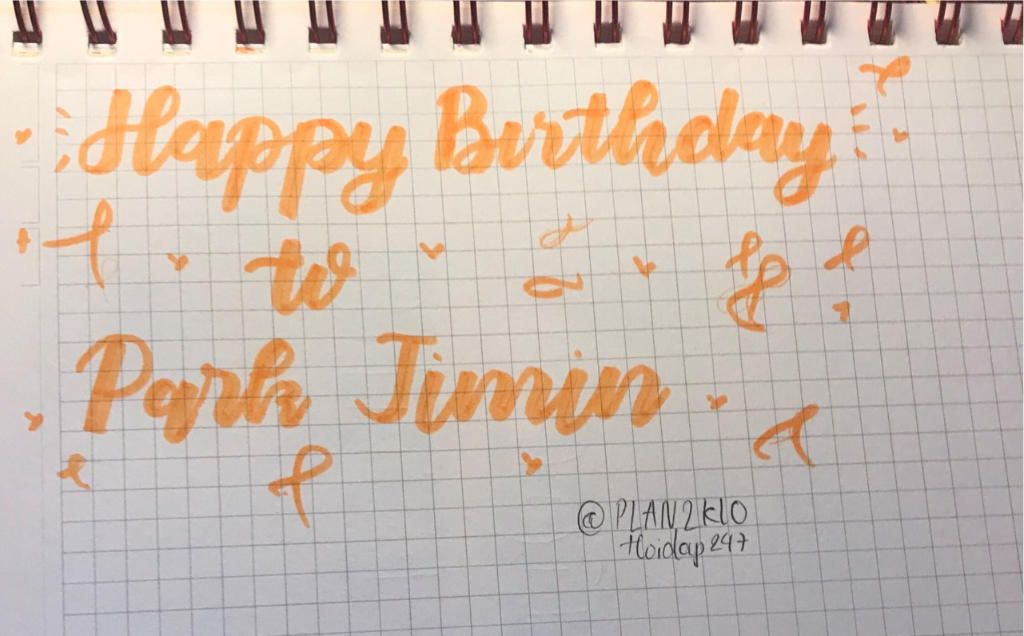 Happy Birthday
to
Park Jimin
@PLAN2KLO
Hoidap247